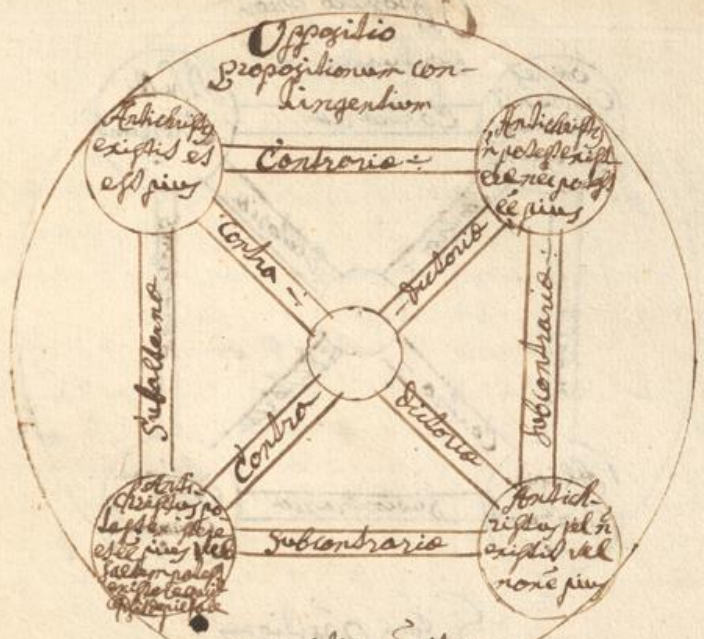 Oppositio
propositionum con-
tingentium
Antichristus
existit et
est pius
Contraria
Antichristus
ñ potest exist
ere nec potest
eē pius
Contra
dictoria
Subalterna
Subcontraria
Contra
dictoria
Anti-
christus po
test existere
et eē pius vel
saltem potest
Subcontraria
Antich-
ristus vel ñ
existit vel
non ē pius